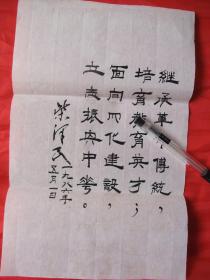 继承革命传统，
培育教育英才；
面向四化建设，
立志振兴中华。
柴泽民
一九八六年
五月一日